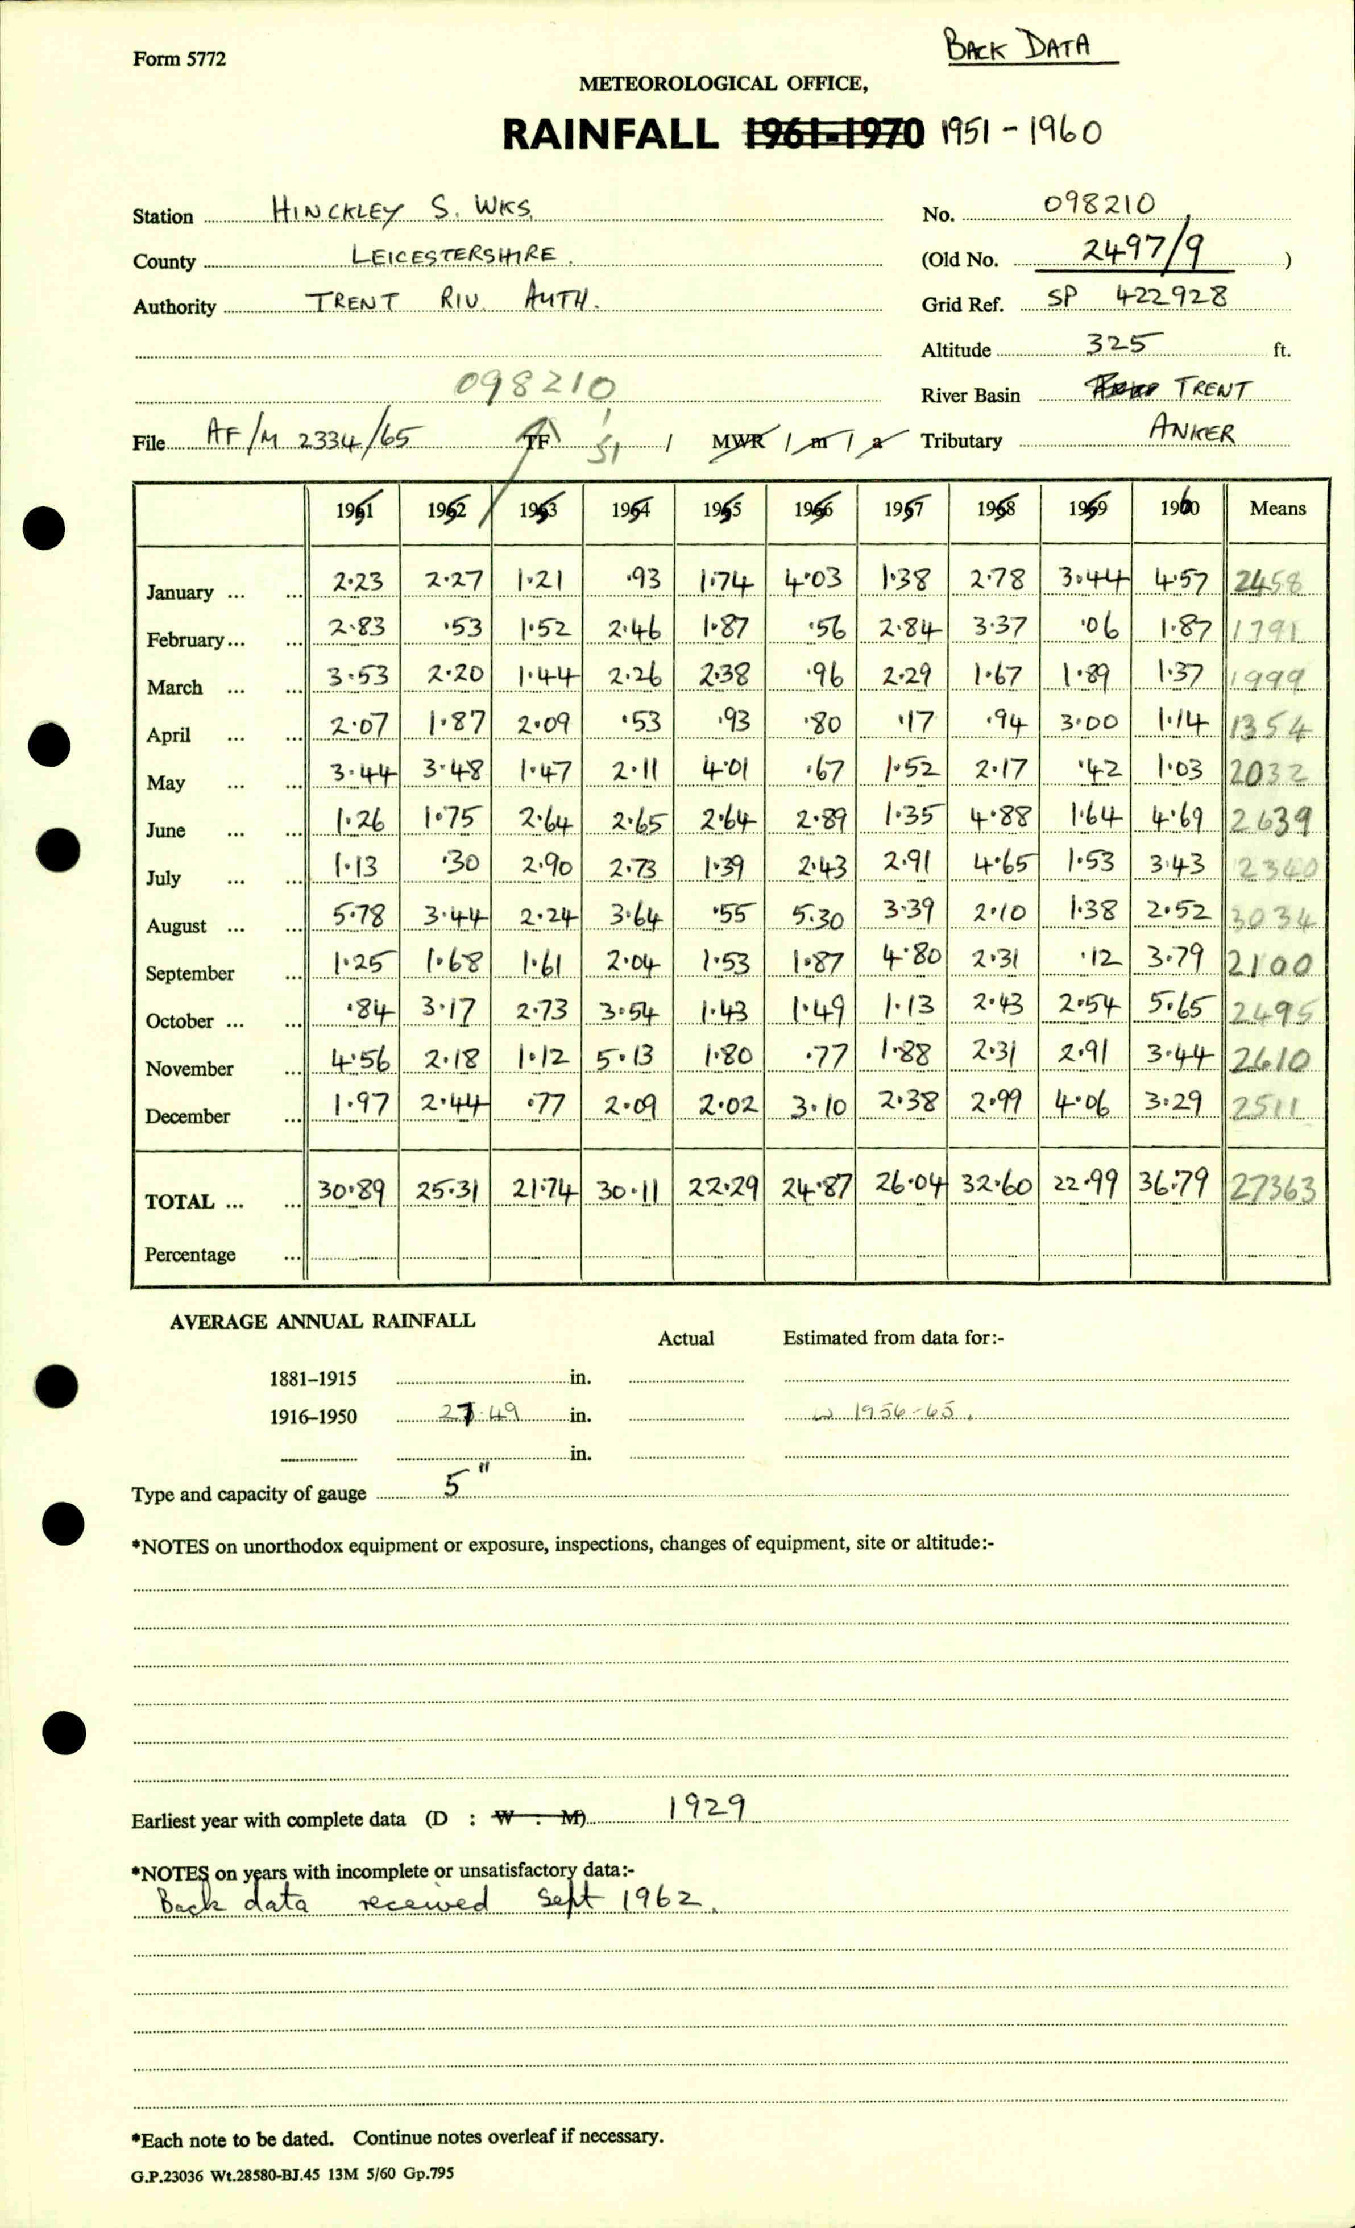 BACK DATA
Form 5772
METEOROLOGICAL OFFICE,
RAINFALL 1961-1970 1951 - 1960
Station HINCKLEY S. WKS. No. 098210
County LEICESTERSHIRE. (Old No. 2497/9 )
Authority TRENT RIV. AUTH. Grid Ref. SP 422928
Altitude 325 ft.
098210 River Basin TRENT
File AF/M 2334/65 TF 51 / MWR / m / a Tributary ANKER
1951 1952 1953 1954 1955 1956 1957 1958 1959 1960 Means
January ... ... 2.23 2.27 1.21 .93 1.74 4.03 1.38 2.78 3.44 4.57 2458
February ... ... 2.83 .53 1.52 2.46 1.87 .56 2.84 3.37 .06 1.87 1791
March ... ... 3.53 2.20 1.44 2.26 2.38 .96 2.29 1.67 1.89 1.37 1999
April ... ... 2.07 1.87 2.09 .53 .93 .80 .17 .94 3.00 1.14 1354
May ... ... 3.44 3.48 1.47 2.11 4.01 .67 1.52 2.17 .42 1.03 2032
June ... ... 1.26 1.75 2.64 2.65 2.64 2.89 1.35 4.88 1.64 4.69 2639
July ... ... 1.13 .30 2.90 2.73 1.39 2.43 2.91 4.65 1.53 3.43 2340
August ... ... 5.78 3.44 2.24 3.64 .55 5.30 3.39 2.10 1.38 2.52 3034
September ... 1.25 1.68 1.61 2.04 1.53 1.87 4.80 2.31 .12 3.79 2100
October ... ... .84 3.17 2.73 3.54 1.43 1.49 1.13 2.43 2.54 5.65 2495
November ... 4.56 2.18 1.12 5.13 1.80 .77 1.88 2.31 2.91 3.44 2610
December ... 1.97 2.44 .77 2.09 2.02 3.10 2.38 2.99 4.06 3.29 2511
TOTAL ... ... 30.89 25.31 21.74 30.11 22.29 24.87 26.04 32.60 22.99 36.79 27363
Percentage ...
AVERAGE ANNUAL RAINFALL
Actual Estimated from data for:-
1881-1915 in.
1916-1950 27.49 in. 1956-65.
in.
Type and capacity of gauge 5"
*NOTES on unorthodox equipment or exposure, inspections, changes of equipment, site or altitude:-
Earliest year with complete data (D : W : M) 1929
*NOTES on years with incomplete or unsatisfactory data:-
Back data received Sept 1962.
*Each note to be dated. Continue notes overleaf if necessary.
G.P.23036 Wt.28580-BJ.45 13M 5/60 Gp.795